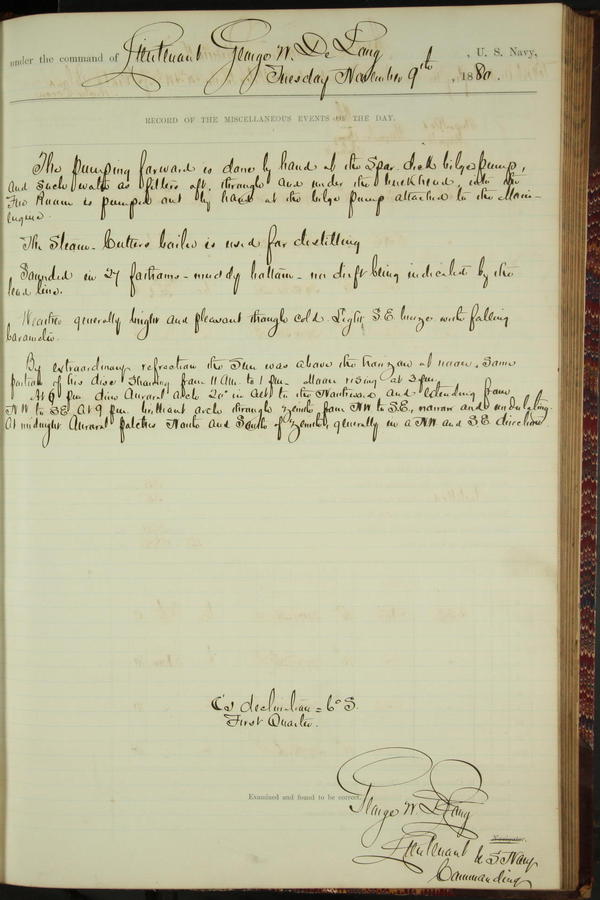 under the command of Lieutenant George W. De Long, U. S. Navy,
Tuesday November 9th, 1880.
RECORD OF THE MISCELLANEOUS EVENTS OF THE DAY.
The pumping forward is done by hand at the Spar deck bilge pump,
and such water as filters aft, through and under the bulkhead, into the
Fire Room is pumped out by hand at the bilge pump attached to the Main
Engine.
The Steam-Cutters boiler is used for distilling
Sounded in 27 fathoms - muddy bottom - no drift being indicated by the
lead line.
Weather generally bright and pleasant though cold. Light S.E. breeze with falling
barometer.
By extraordinary refraction the Sun was above the horizon at noon, some
portion of his disc showing from 11 AM. to 1 pm. Moon rising at 3 pm.
At 6 pm dim Auroral arch 20° in alt to the Northward and extending from
NW to SE. At 9 pm. brilliant arch through zenith from NW to S.E., narrow and undulating.
At midnight Auroral patches North and South of zenith, generally in a NW and SE direction.
☾'s declination = 6° S.
First Quarter.
Examined and found to be correct.
George W. De Long
Navigator.
Lieutenant U S Navy
Commanding